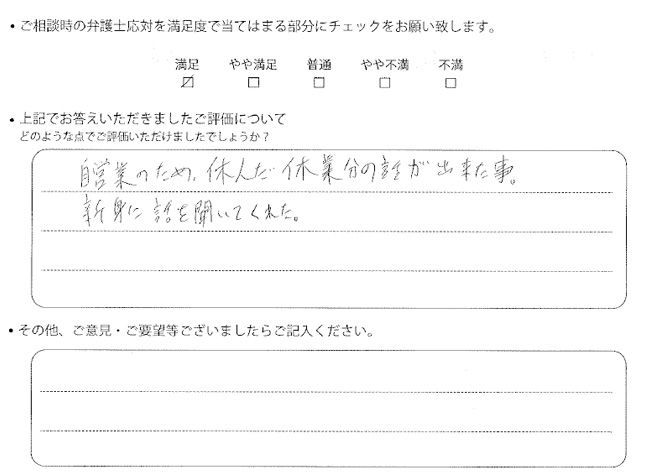 • ご相談時の弁護士応対を満足度で当てはまる部分にチェックをお願い致します。
満足 やや満足 普通 やや不満 不満
☑ □ □ □ □
• 上記でお答えいただきましたご評価について
どのような点でご評価いただけましたでしょうか？
自営業のため、休んだ休業分の話が出来た事。
新身に話を聞いてくれた。
• その他、ご意見・ご要望等ございましたらご記入ください。